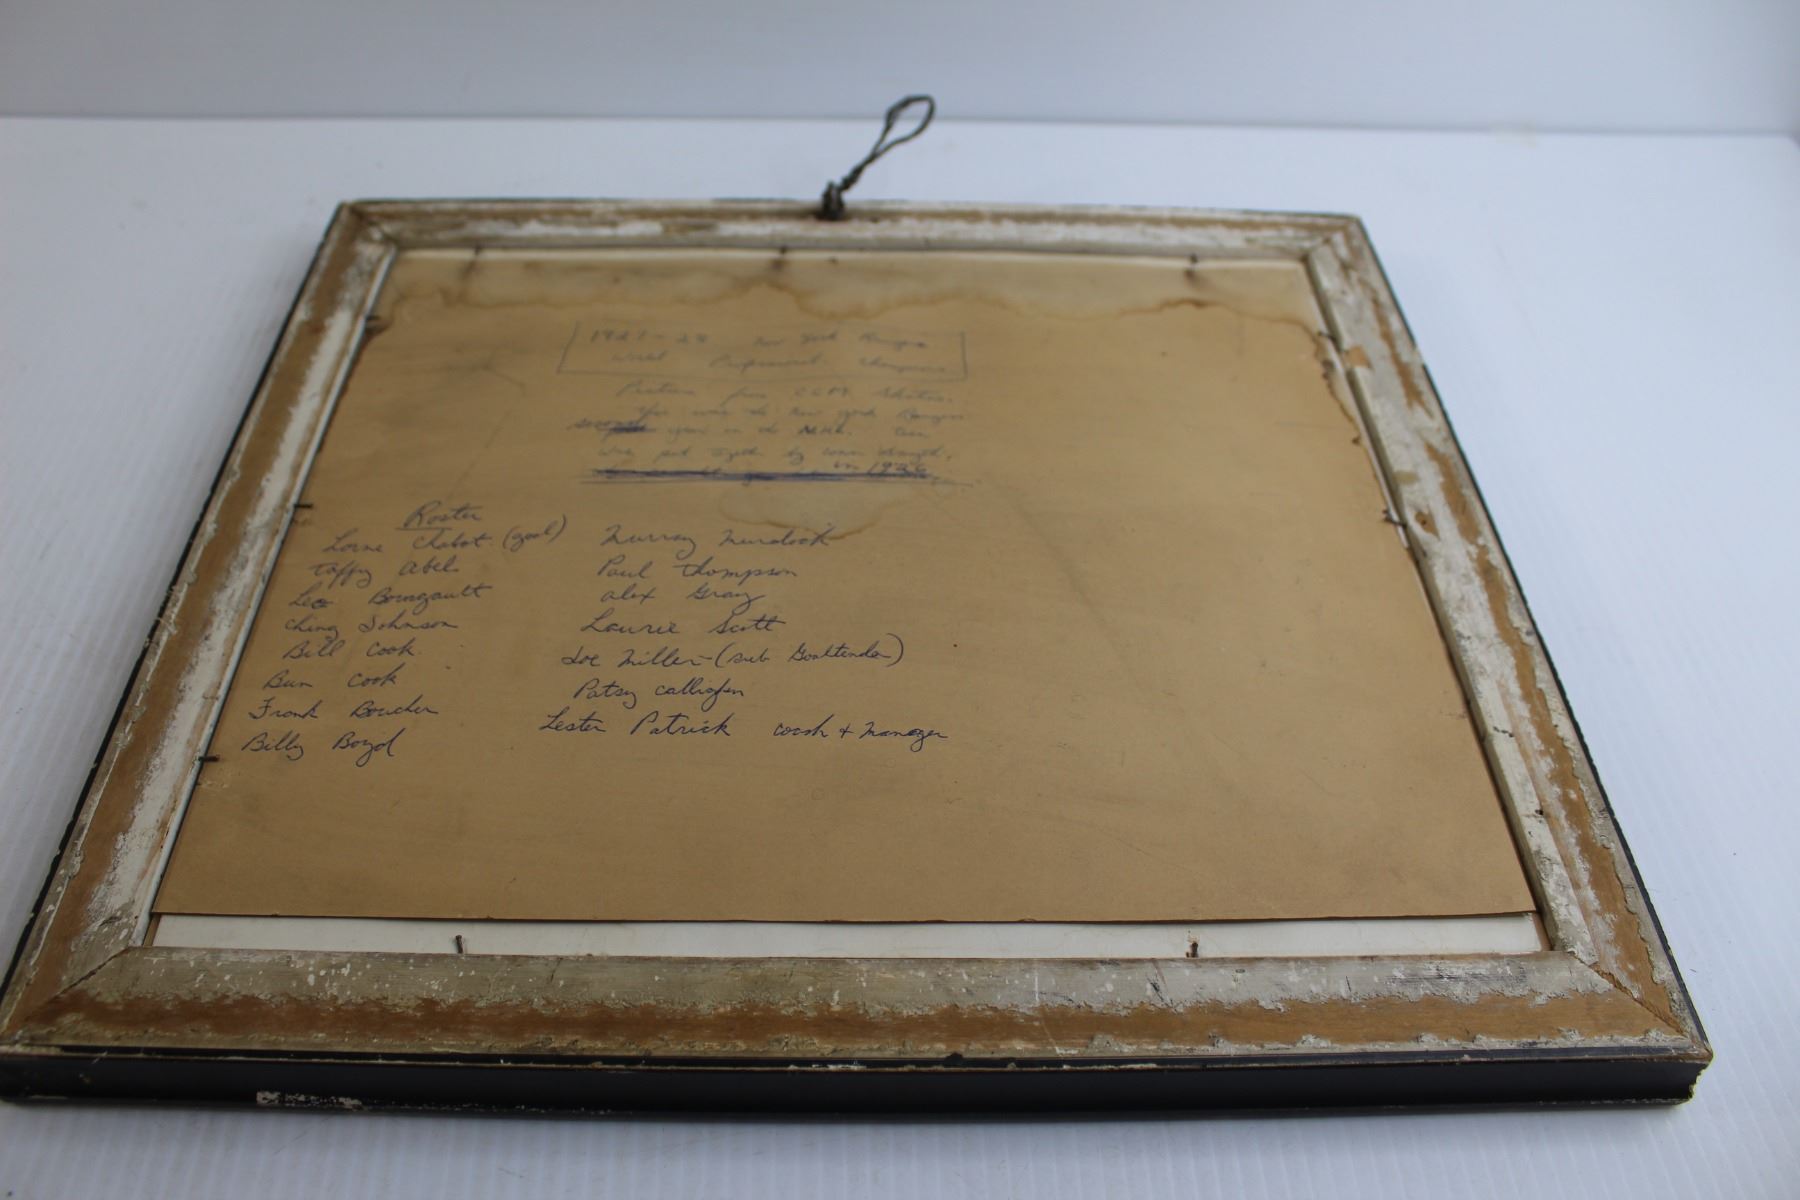 1927-28 New York Rangers
World Professional Champions
Picture from CCM Skates.
This was the New York Rangers
second year in the NHL. Team
was put together by Conn Smythe.
in 1926
Roster
Lorne Chabot (goal)
Taffy Abel
Leo Bourgault
Ching Johnson
Bill Cook
Bun Cook
Frank Boucher
Billy Boyd
Murray Murdoch
Paul Thompson
Alex Gray
Laurie Scott
Joe Miller - (sub Goaltender)
Patsy Callighen
Lester Patrick coach + Manager